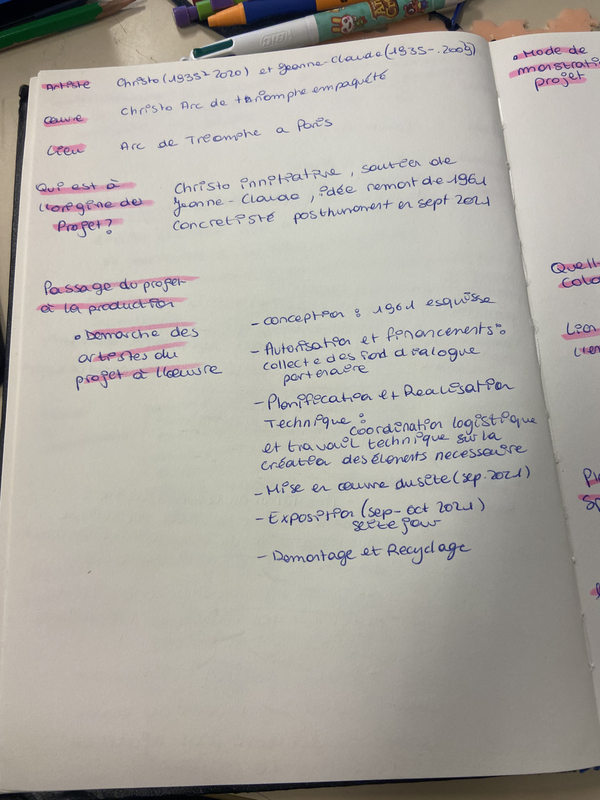 Artiste Christo (1935-2020) et Jeanne-Claude (1935-.2009)
œuvre Christo Arc de triomphe empaqueté
Lieu Arc de Triomphe a Paris
Qui est à Christo innitiative, soutien de
l'origine des Jeanne-Claude, idée remont de 1961
Projet? Concretisté posthument en sept 2021
Passage du projet
à la production
• Démarche des
artistes du
projet à l'œuvre
- conception : 1961 esquisse
- Autorisation et financements :
collecte des fond dialogue
partenaire
- Planification et Réalisation
Technique :
Coordination logistique
et travail technique sur la
création des élements necessaire
- Mise en œuvre du site (sep. 2021)
- Exposition (sep-oct 2021)
seize jour
- Demontage et Recyclage
• Mode de
monstrati
projet
Quell
Colo
Lien
l'en